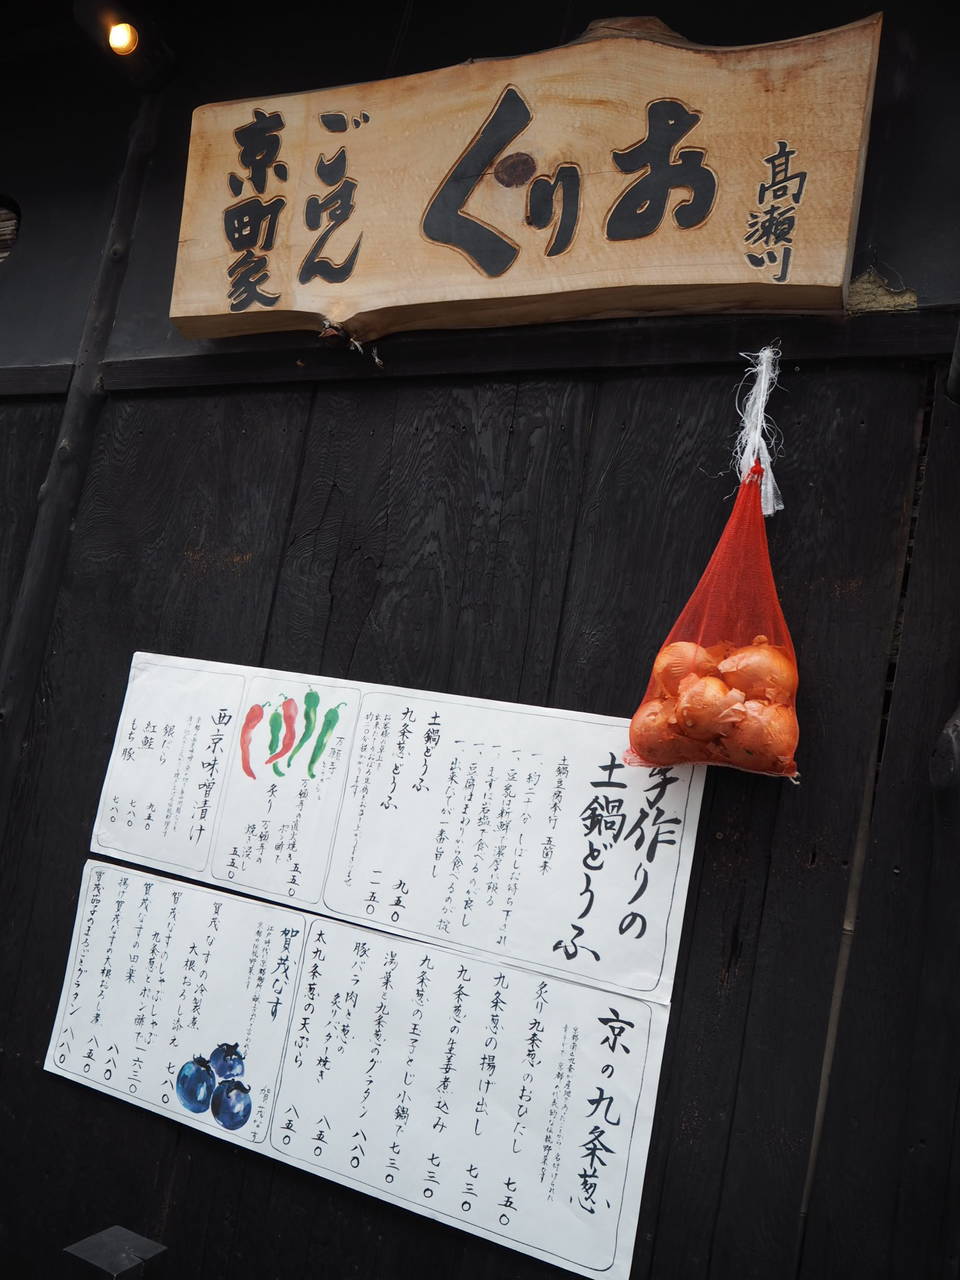 高瀬川
おりぐ
ごはん
京町家
手作りの
土鍋どうふ
土鍋豆腐奉行 五箇条
土鍋どうふ 九五〇
九条葱どうふ 一一五〇
万願寺
炙り
万願寺の直火焼き 五五〇
万願寺の焼き浸し 五五〇
西京味噌漬け
銀だら 九五〇
紅鮭 七八〇
もち豚 七八〇
京の九条葱
炙り九条葱のおひたし 七五〇
九条葱の揚げ出し 七三〇
九条葱の生姜煮込み 七三〇
九条葱の玉子とじ小鍋 七三〇
湯葉と九条葱のグラタン 八八〇
豚バラ肉と葱の
炙りバター焼き 八五〇
太九条葱の天ぷら 八五〇
賀茂なす
賀茂なす
賀茂なすの冷製煮
大根おろし添え 七八〇
賀茂なすのしゃぶしゃぶ
九条葱とポン酢で 一六三〇
賀茂なすの田楽 八八〇
揚げ賀茂なすの大根おろし煮 八五〇
賀茂茄子のまるごとグラタン 八八〇